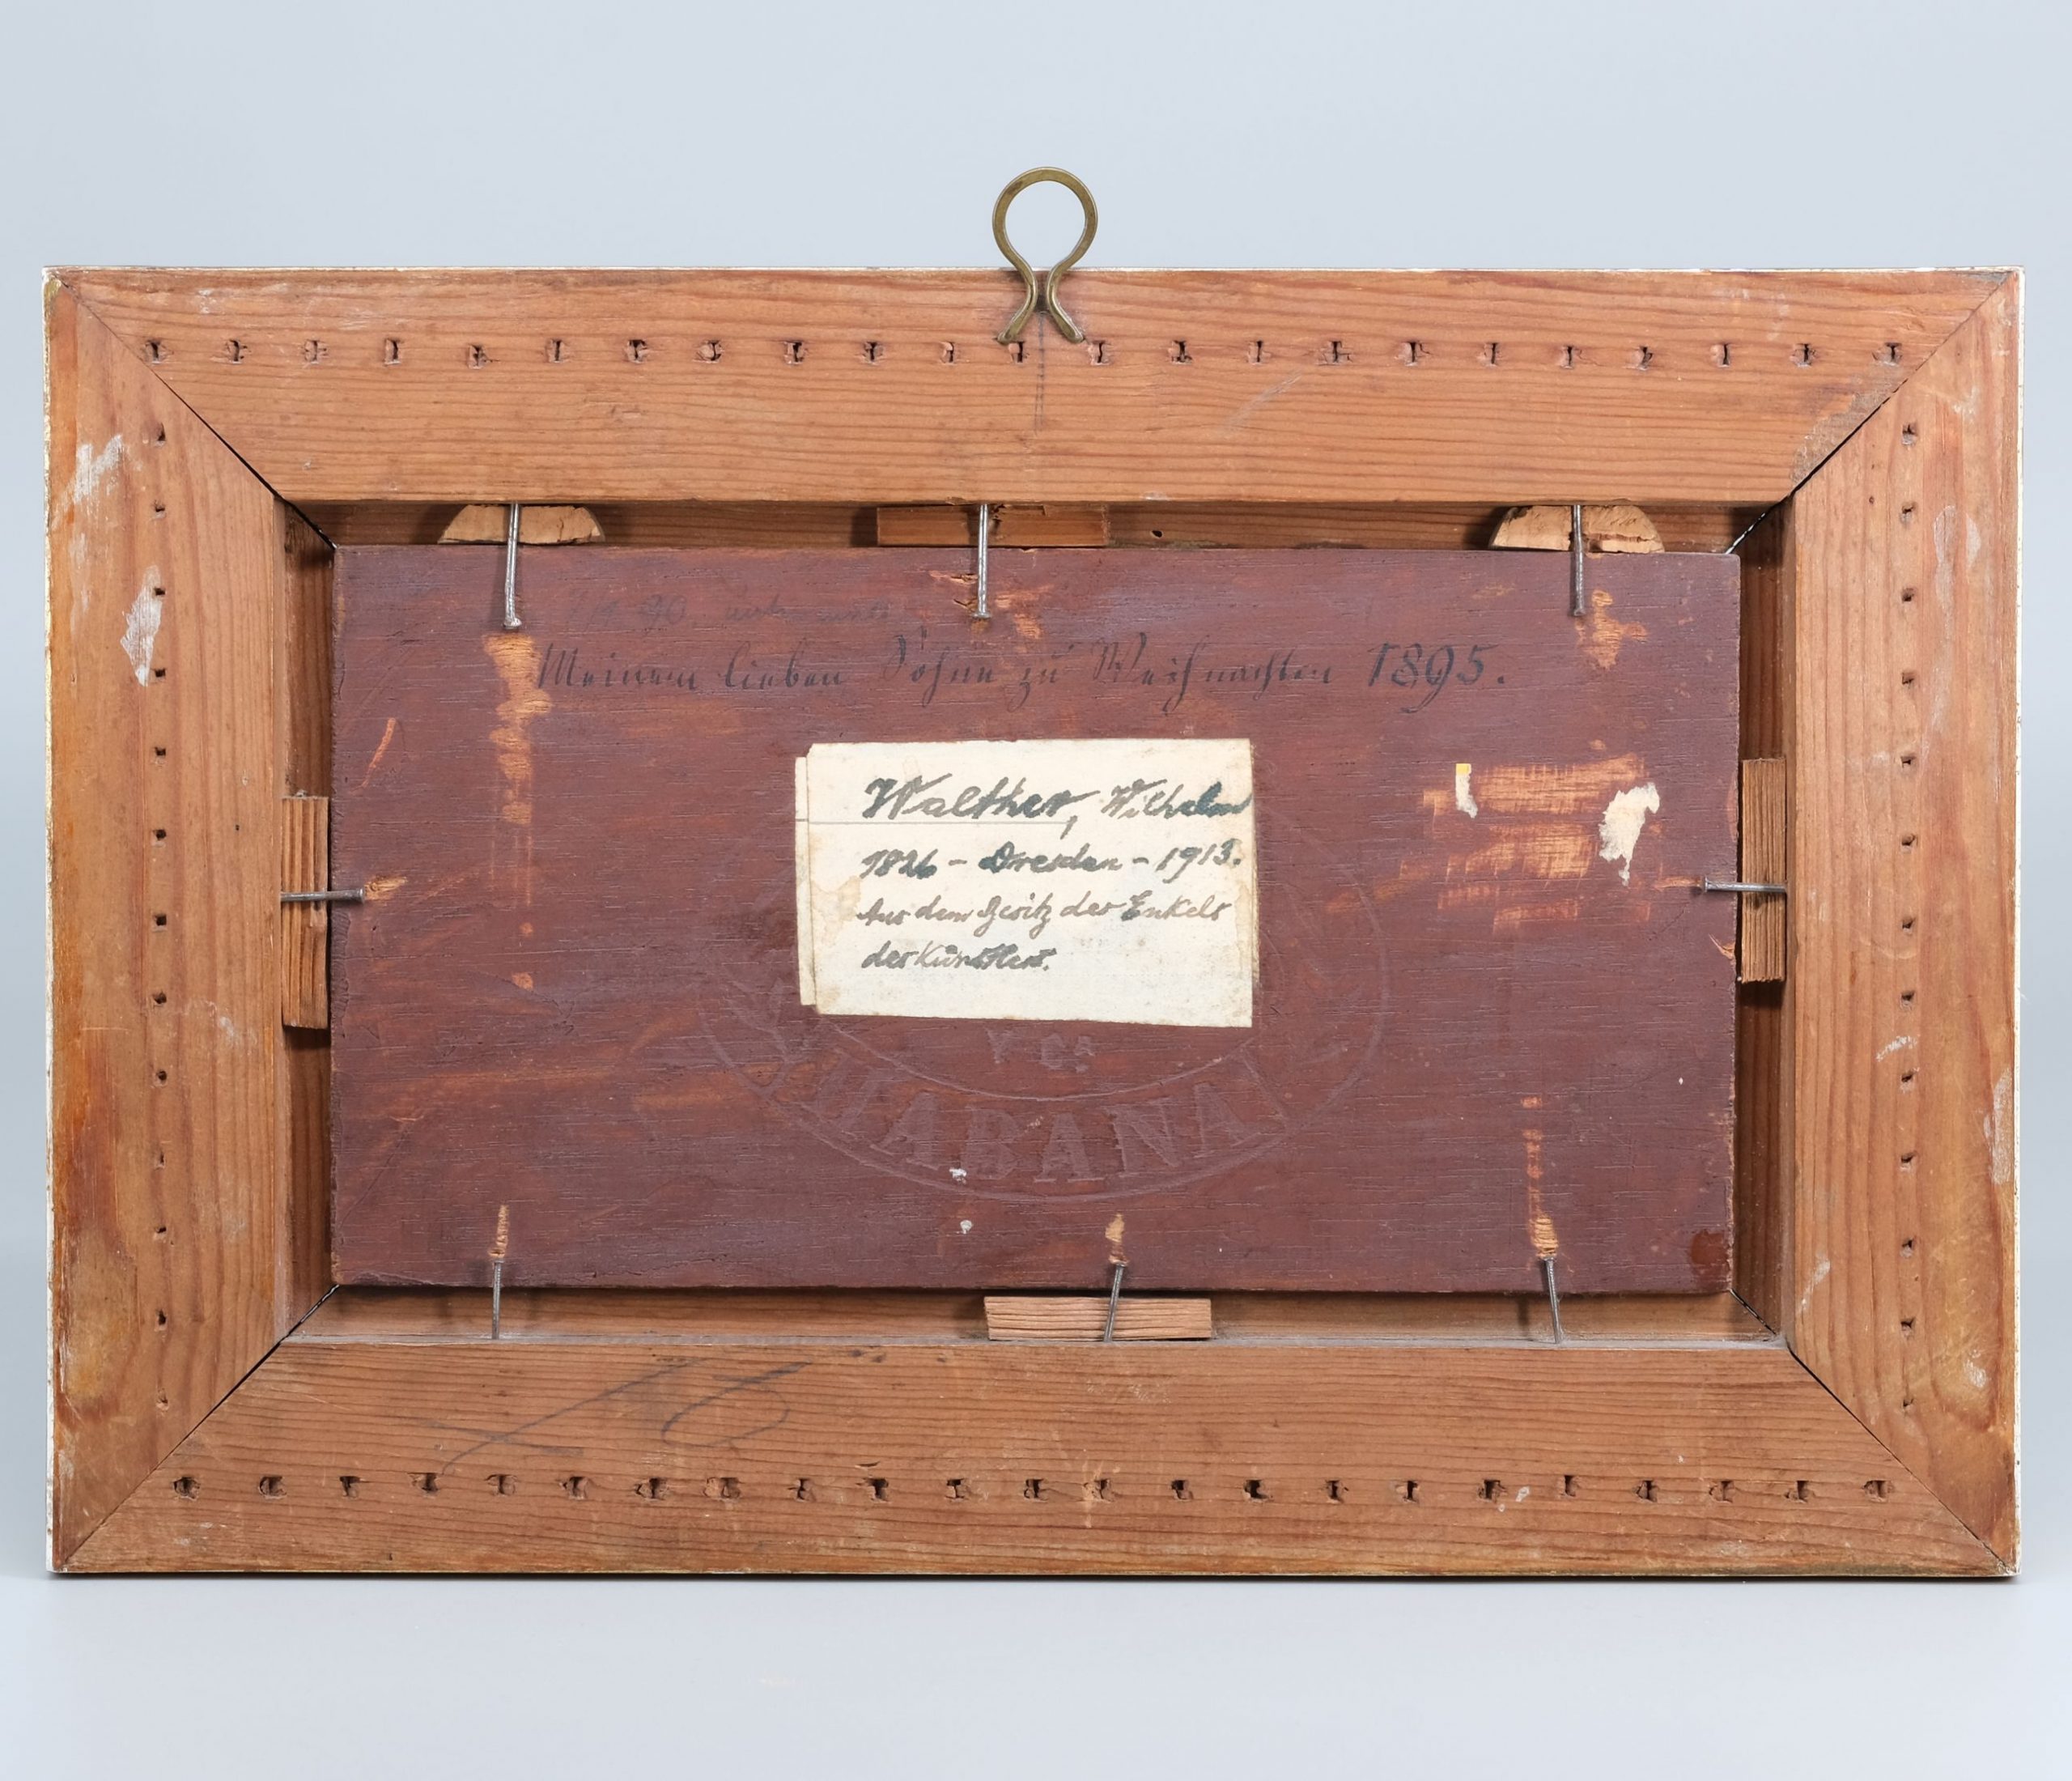 Meinem lieben Sohne zu Weihnachten 1895.
Walther, Wilhelm
1826 - Dresden - 1913.
Aus dem Besitz des Enkels
des Künstlers.
Y Ca
HABANA